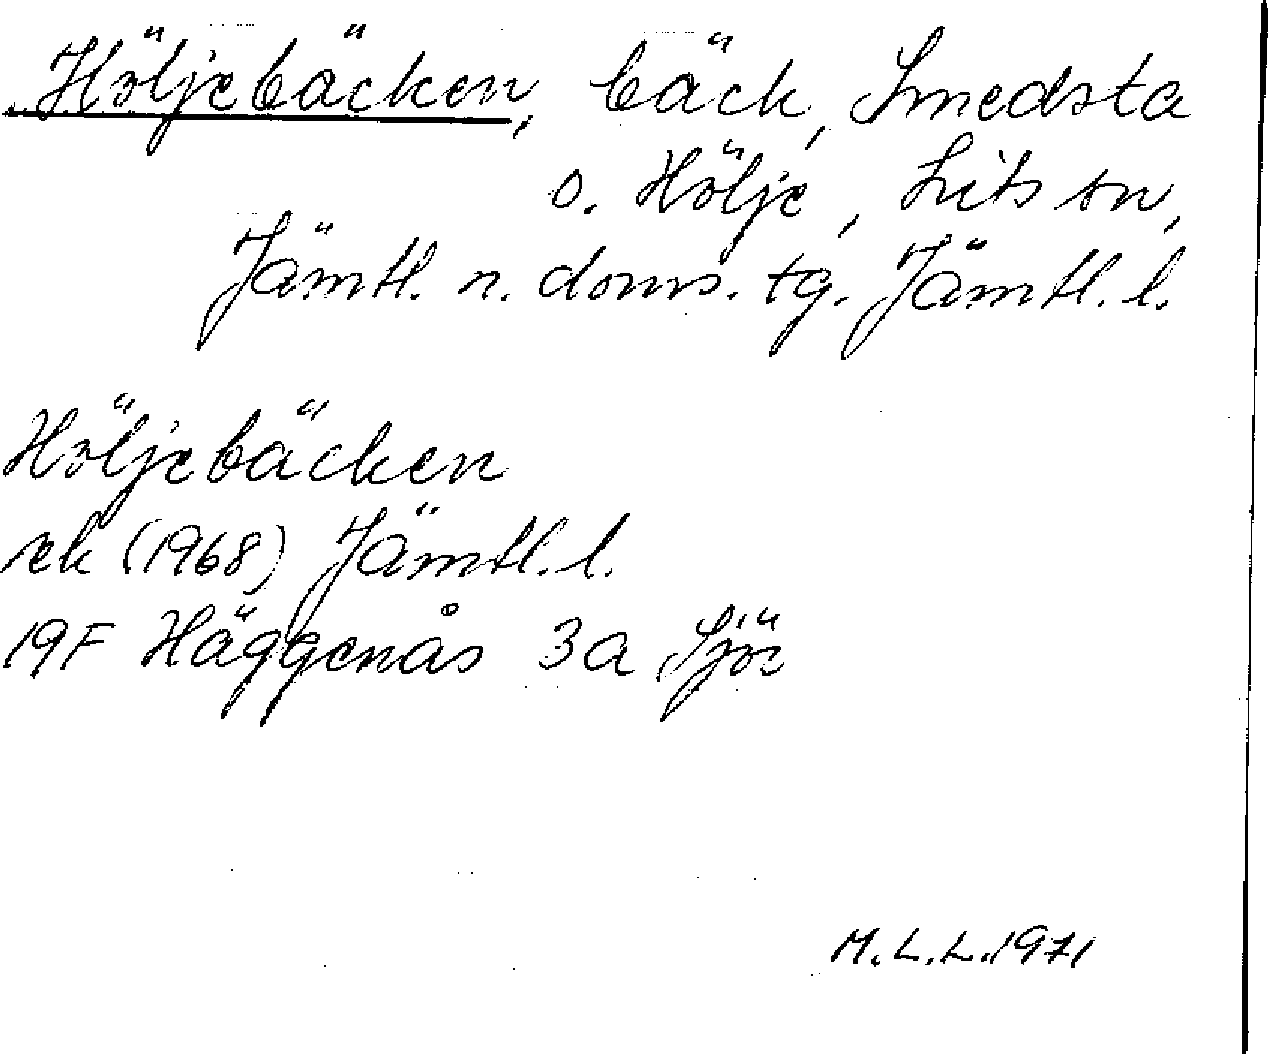 Höljebäcken, bäck, Smedsta
o. Hölje, Lits sn,
Jämtl. n. doms. tg. Jämtl. l.
Höljebäcken
rek (1968) Jämtl. l.
19F Häggenås 3a Sjör
M.L.L. 1971